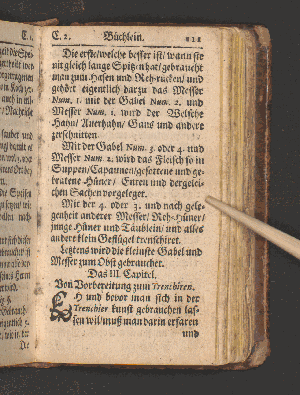 C. 2. Büchlein. 211
Die erste/welche besser ist/wann sie
nit gleich lange Spitz in hat/gebraucht
man zum Hasen und Reh-rucken/ und
gehört eigentlich darzu das Messer
Num. 1. mit der Gabel Num. 2. und
Messer Num. 1. wird der Welsche
Hahn/ Auerhahn/ Gans und andere
zerschnitten.
Mit der Gabel Num. 3. oder 4. und
Messer Num. 2. wird das Fleisch so in
Suppen/Capaunen/gesottene und ge-
bratene Hüner/ Enten und dergelei-
chen Sachen vorgeleget.
Mit der 4. oder 3. und nach gele-
genheit anderer Messer/ Reb-Hüner/
junge Hüner und Täublein/ und alles
ander klein Geflügel trenschiret.
Letztens wird die kleinste Gabel und
Messer zum Obst gebrauchet.
Das III. Capitel.
Von Vorbereitung zum Trenchiren.
EH und bevor man sich in der
Trenchier kunst gebrauchen las-
sen wil/muß man darin erfaren
und